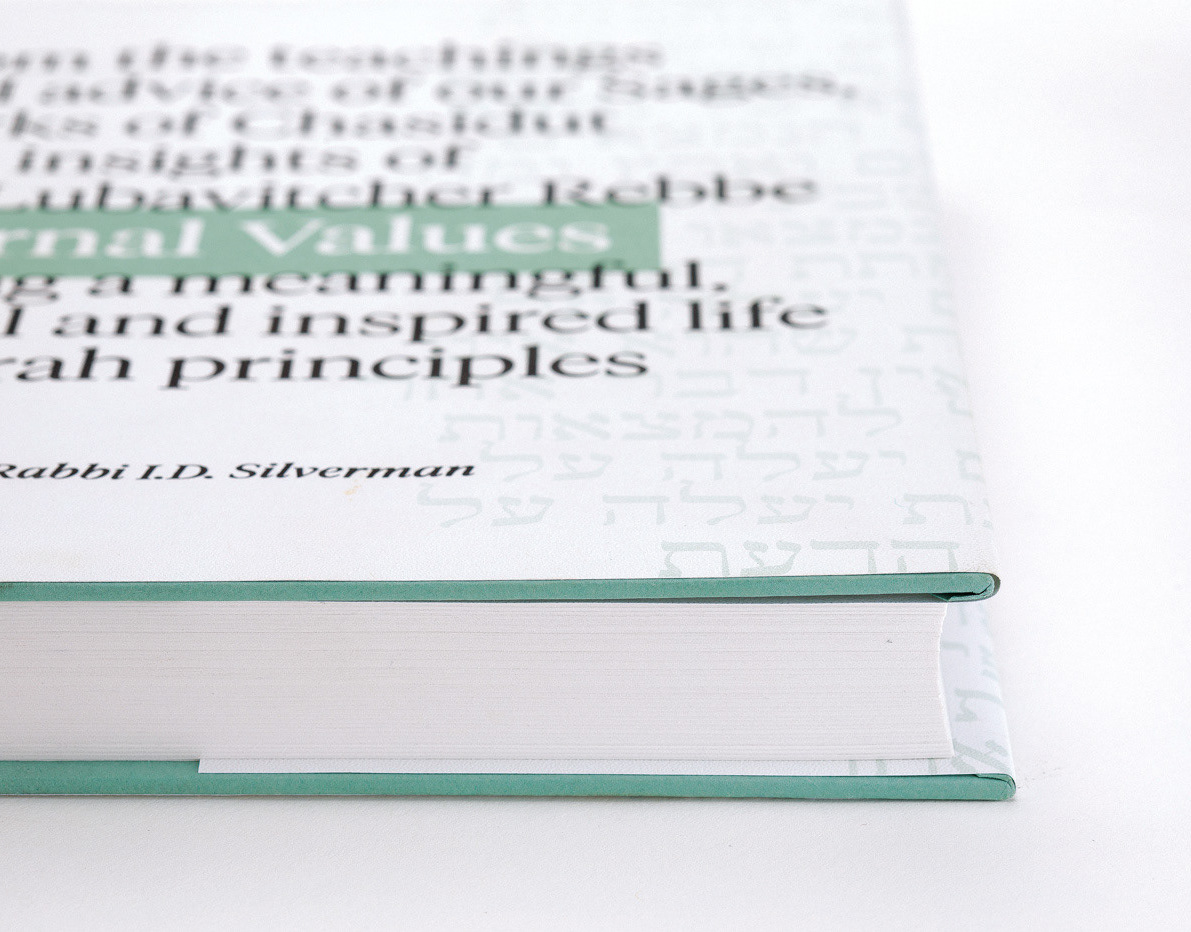 om the teachings
d advice of our Sages,
rks of Chasidut
insights of
Lubavitcher Rebbe
rnal Values
ng a meaningful,
l and inspired life
rah principles
Rabbi I.D. Silverman